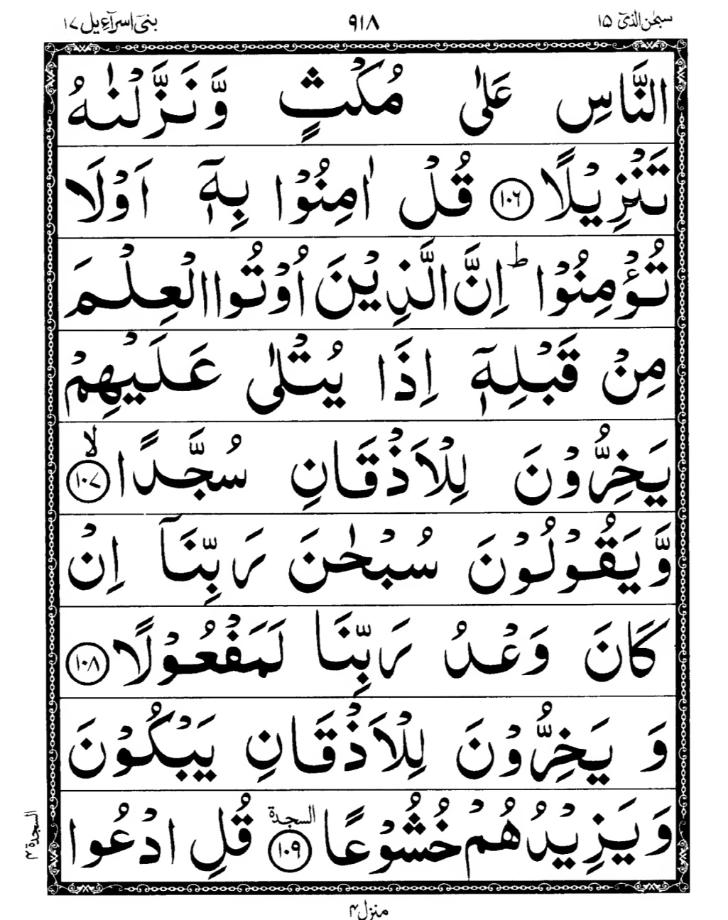 سبحٰن الذیٓ ۱۵ ۹۱۸ بنیٓ اسرآءیل ۱۷
النَّاسِ عَلٰى مُكْثٍ وَّنَزَّلْنٰهُ
تَنْزِيْلًا ﴿۱۰۶﴾ قُلْ اٰمِنُوْا بِهٖٓ اَوْلَا
تُؤْمِنُوْا ؕ اِنَّ الَّذِيْنَ اُوْتُوا الْعِلْمَ
مِنْ قَبْلِهٖٓ اِذَا يُتْلٰى عَلَيْهِمْ
يَخِرُّوْنَ لِلْاَذْقَانِ سُجَّدًا ۙ﴿۱۰۷﴾
وَّيَقُوْلُوْنَ سُبْحٰنَ رَبِّنَآ اِنْ
كَانَ وَعْدُ رَبِّنَا لَمَفْعُوْلًا ﴿۱۰۸﴾
وَ يَخِرُّوْنَ لِلْاَذْقَانِ يَبْكُوْنَ
وَيَزِيْدُهُمْ خُشُوْعًا ﴿۱۰۹﴾ السجدة قُلِ ادْعُوا
السجدة ۴
منزل ۴